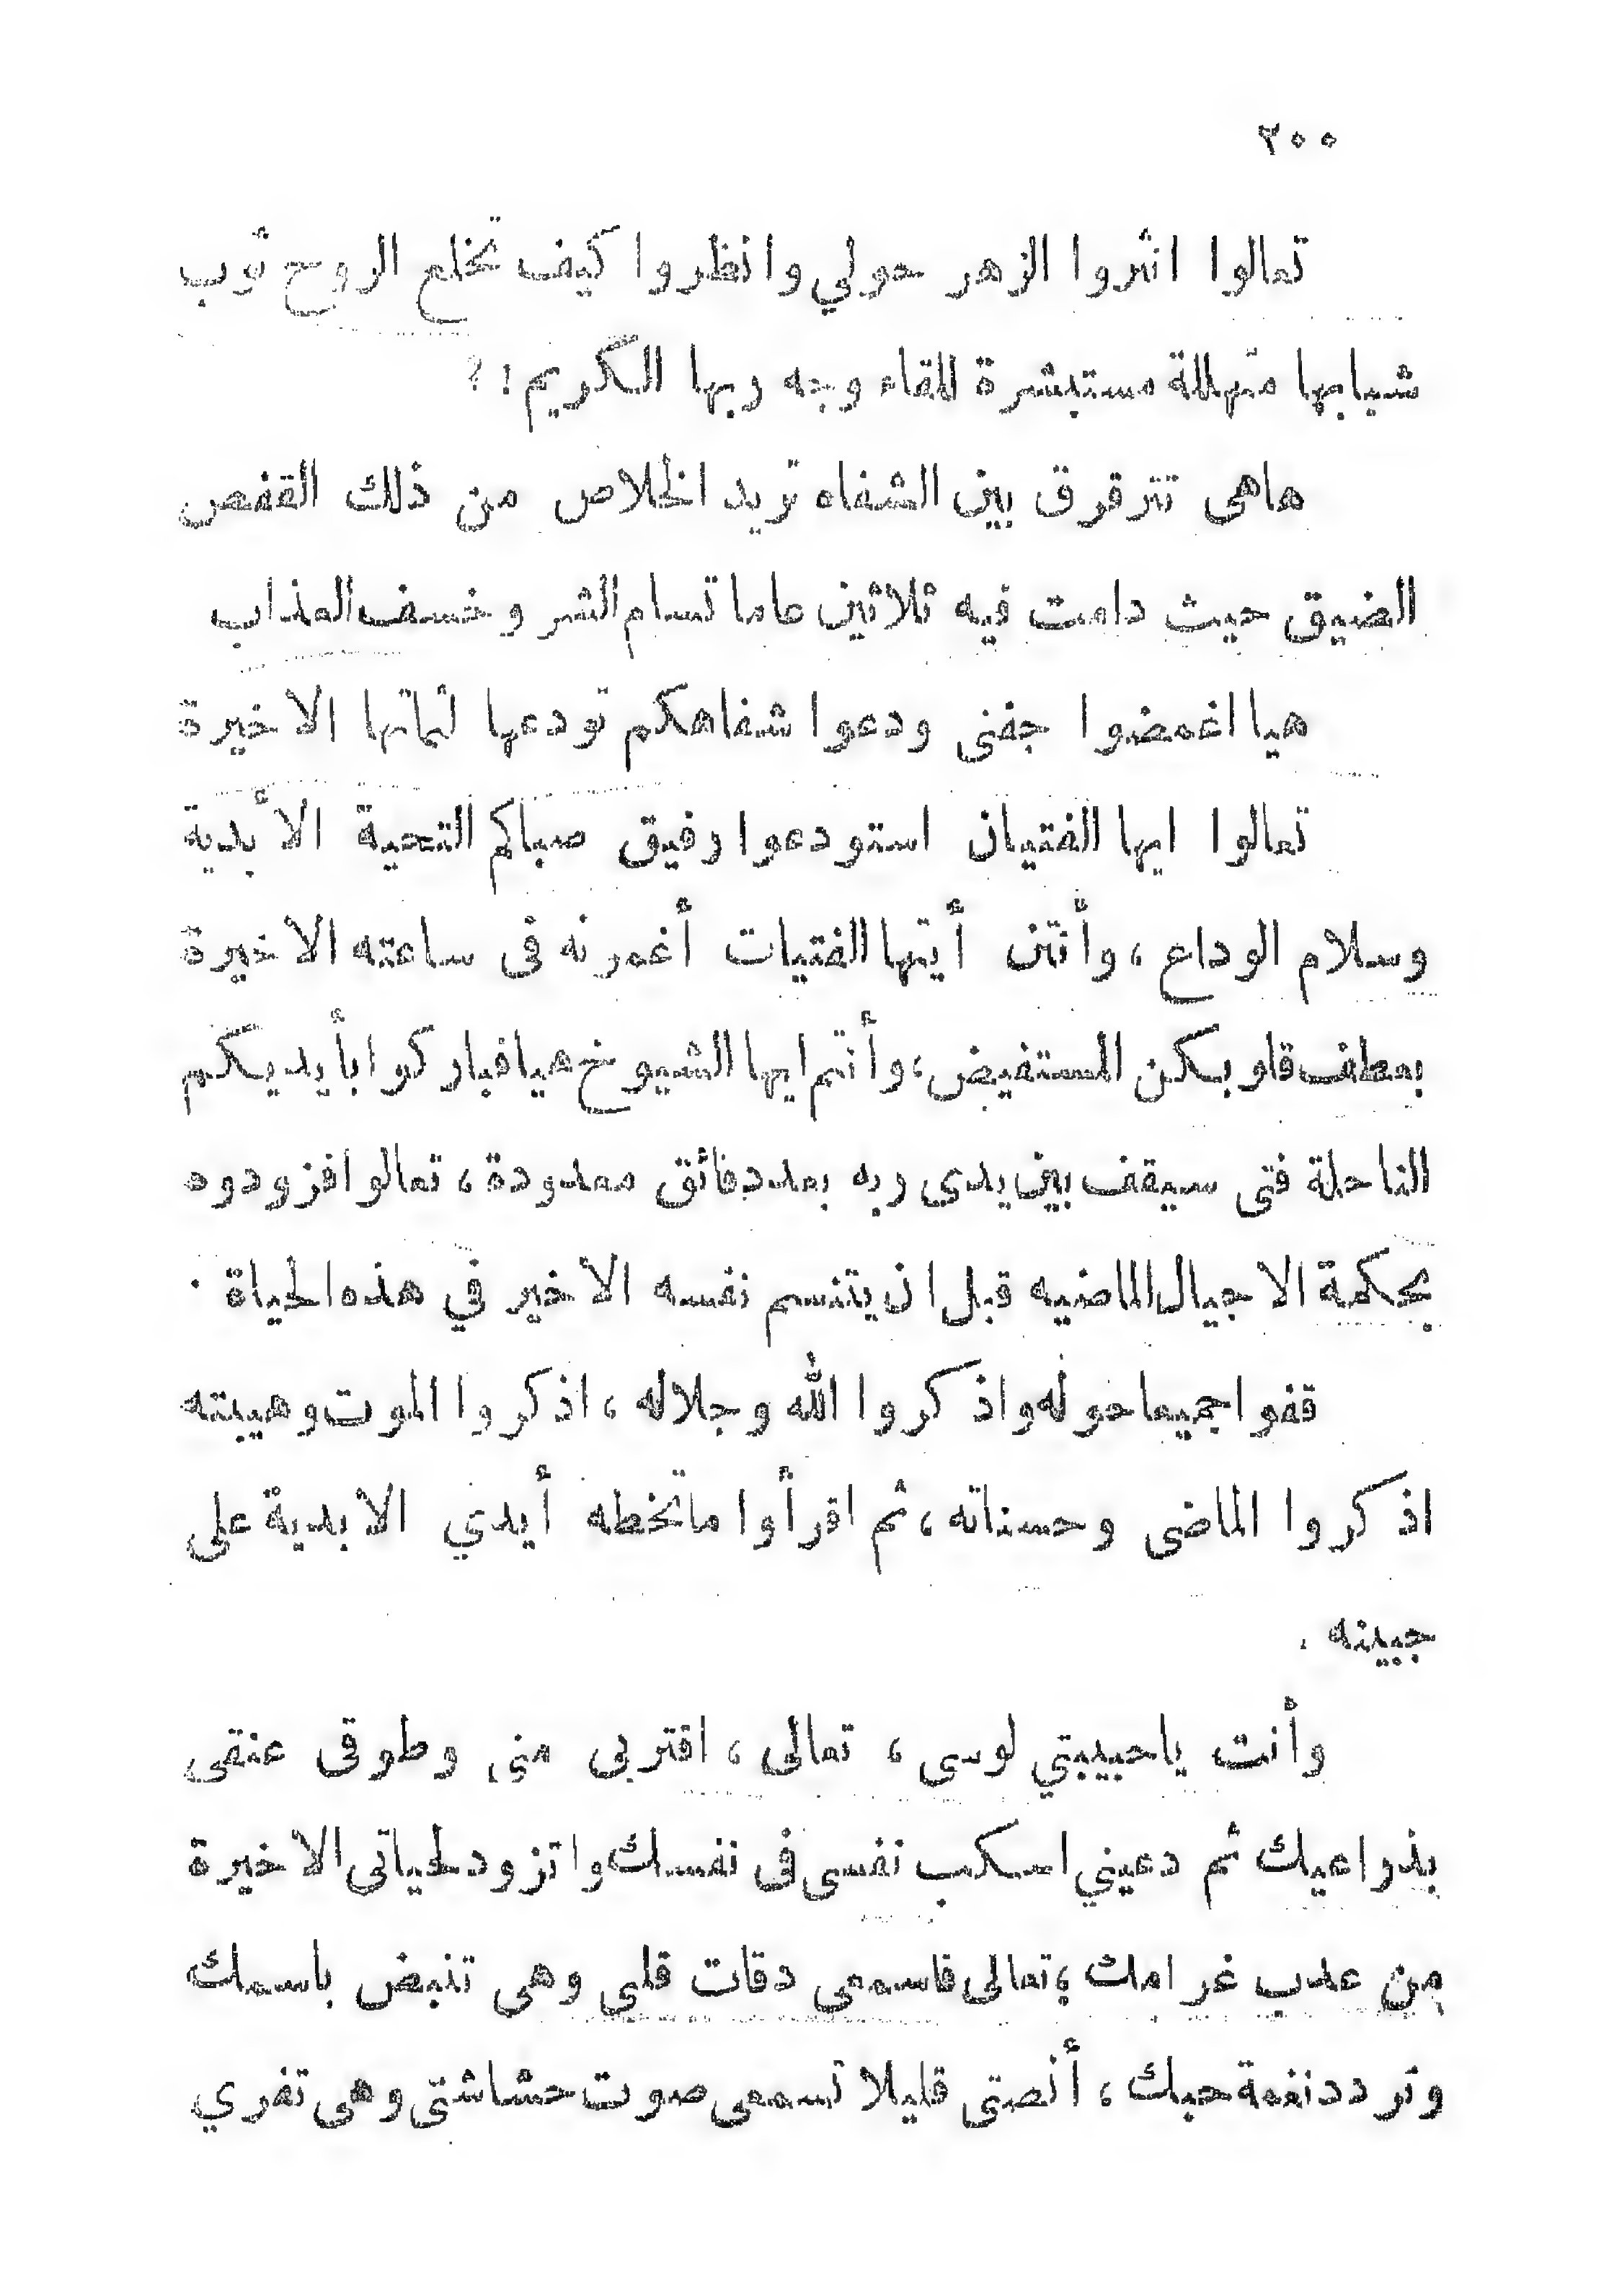 ٢٠٠
تعالوا انثروا الزهر حولي وانظروا كيف تخلع الروح ثوب
شبابها متهللة مستبشرة للقاء وجه ربها الكريم ؛ ؟
هاهى تترقرق بين الشفاه تريد الخلاص من ذلك القفص
الضيق حيث دامت فيه ثلاثين عاما تسام الشر وخسف العذاب
هيا اغمضوا جفنى ودعوا شفاهكم تودعها لثماتها الاخيرة
تعالوا ايها الفتيان استودعوا رفيق صباكم التحية الأبدية
وسلام الوداع ، وأنتن أيتها الفتيات أغمرنه فى ساعته الاخيرة
بعطف قلوبكن المستفيض ، وأنتم ايها الشيوخ هيا فباركوا بأيديكم
الناحلة فتى سيقف بين يدى ربه بعد دقائق معدودة ، تعالوا فزودوه
بحكمة الاجيال الماضيه قبل ان يتنسم نفسه الاخير في هذه الحياة .
قفوا جميعا حوله واذكروا الله وجلاله ، اذكروا الموت وهيبته
اذكروا الماضى وحسناته ، ثم اقرأوا ماتخطه أيدي الابدية على
جبينه .
وأنت ياحبيبتي لوسى ، تعالى ، اقتربى منى وطوقى عنقى
بذراعيك ثم دعيني اسكب نفسى فى نفسك واتزود لحياتى الاخيرة
من عدب غرامك ، تعالى فاسمعى دقات قلبى وهى تنبض باسمك
وتردد نغمة حبك ، أنصتى قليلا تسمعى صوت حشاشتى وهى تفري